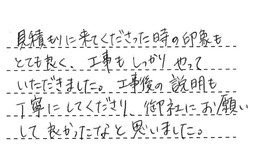 見積もりに来てくださった時の印象も
とても良く、工事もしっかりやって
いただきました。工事後の説明も
丁寧にしてくださり、御社にお願い
して良かったなと思いました。